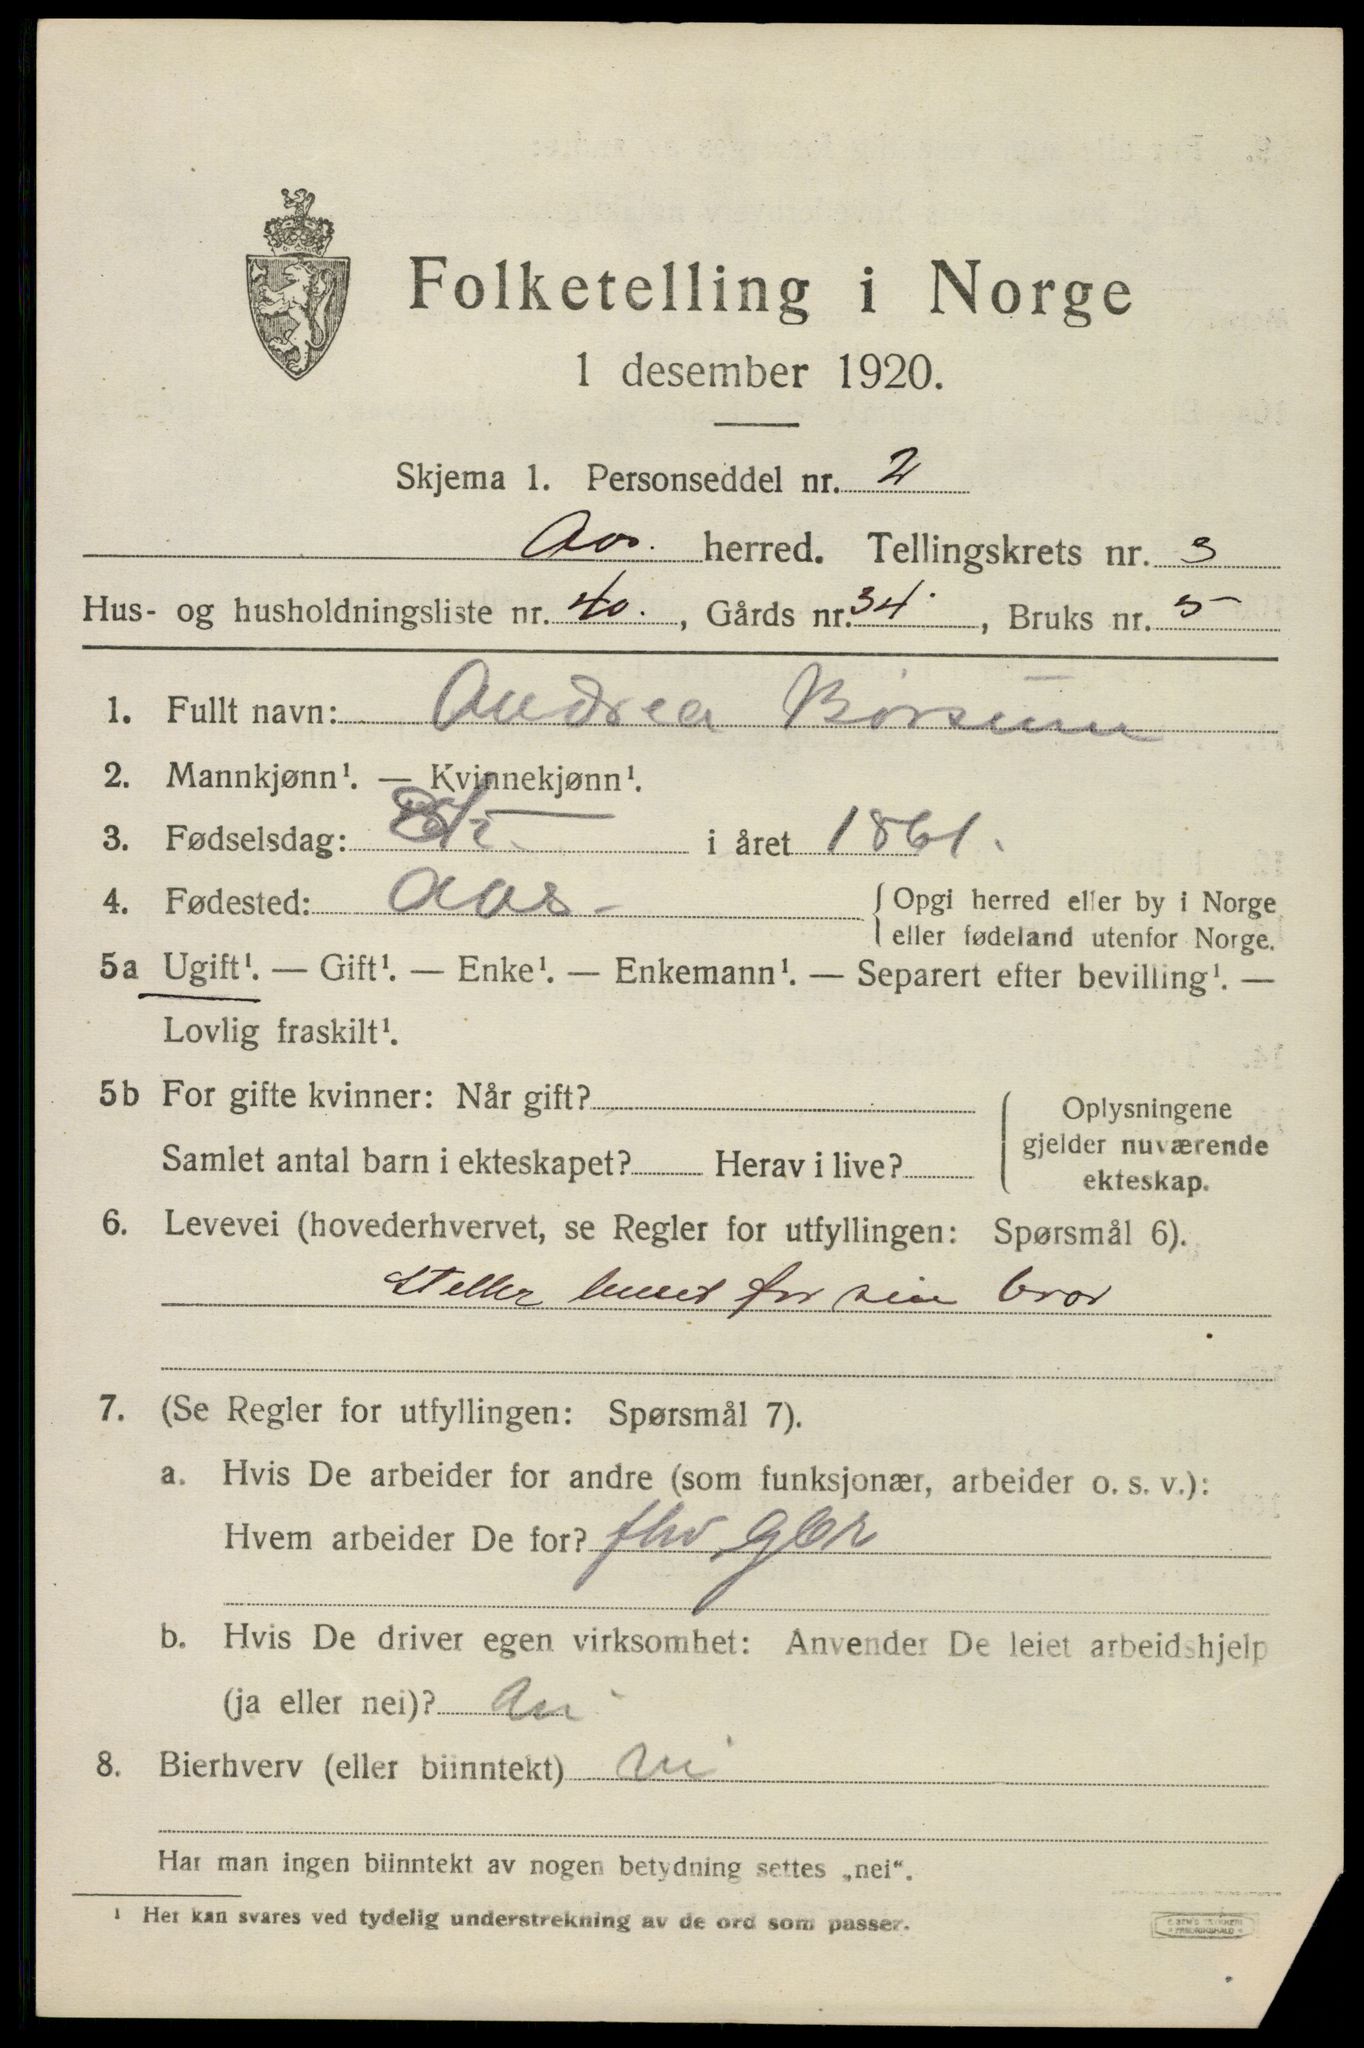 Folketelling i Norge
1 desember 1920.
Skjema 1. Personseddel nr. 2
Aas. herred. Tellingskrets nr. 3
Hus- og husholdningsliste nr. 40., Gårds nr. 34, Bruks nr. 5
1. Fullt navn: Andrea Børsum
2. Mannkjønn¹. — Kvinnekjønn¹.
3. Fødselsdag: i året 1861.
4. Fødested: Aas - { Opgi herred eller by i Norge
eller fødeland utenfor Norge.
5a Ugift¹. — Gift¹. — Enke¹. — Enkemann¹. — Separert efter bevilling¹. —
Lovlig fraskilt¹.
5b For gifte kvinner: Når gift? { Oplysningene
gjelder nuværende
Samlet antal barn i ekteskapet? Herav i live?
ekteskap.
6. Levevei (hovederhvervet, se Regler for utfyllingen: Spørsmål 6).
Steller huset for sin bror
7. (Se Regler for utfyllingen: Spørsmål 7).
a. Hvis De arbeider for andre (som funksjonær, arbeider o. s. v.):
Hvem arbeider De for?
b. Hvis De driver egen virksomhet: Anvender De leiet arbeidshjelp
(ja eller nei)?
8. Bierhverv (eller biinntekt)
Har man ingen biinntekt av nogen betydning settes „nei“.
¹ Her kan svares ved tydelig understrekning av de ord som passer.